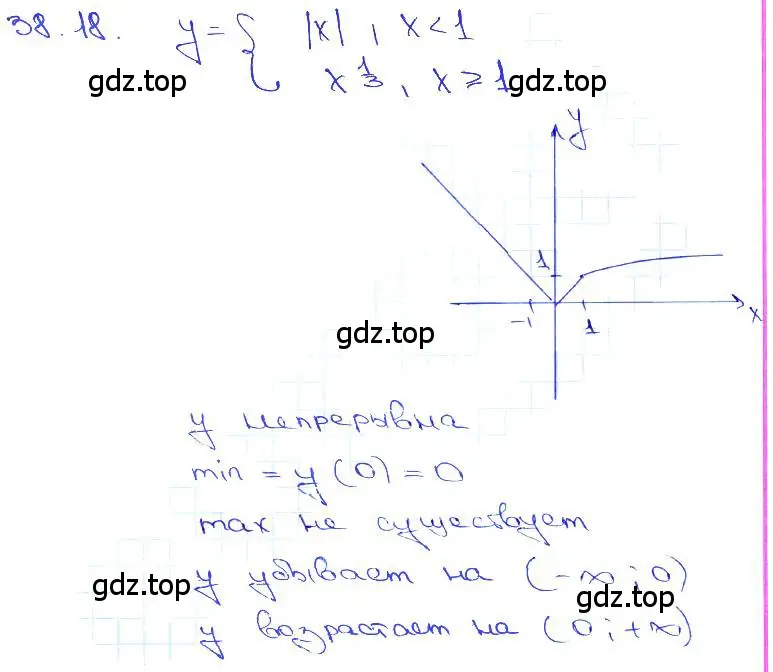 38.18. y = { |x|, x < 1
x^{1/3}, x ≥ 1
gdz.top gdz.top
y
1
-1 1 x
gdz.top
y непрерывна
min = y(0) = 0
max не существует
gdz.top y убывает на (-∞; 0)
gdz.top
y возрастает на (0; +∞)